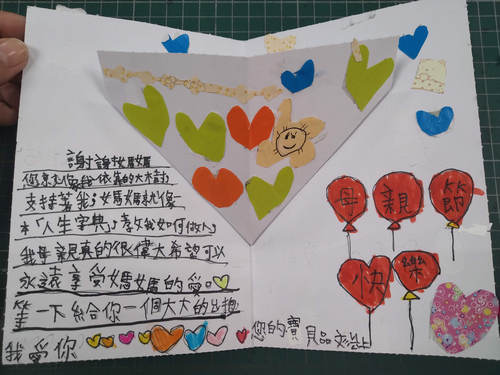 謝謝媽媽
您就像我依靠的大樹
支持著我；媽媽就像一
本「人生字典」教我如何做人
我母親真的很偉大希望可以
永遠享受媽媽的愛。
等一下給你一個大大的擁抱
我愛你
您的寶貝品
母親節
快樂